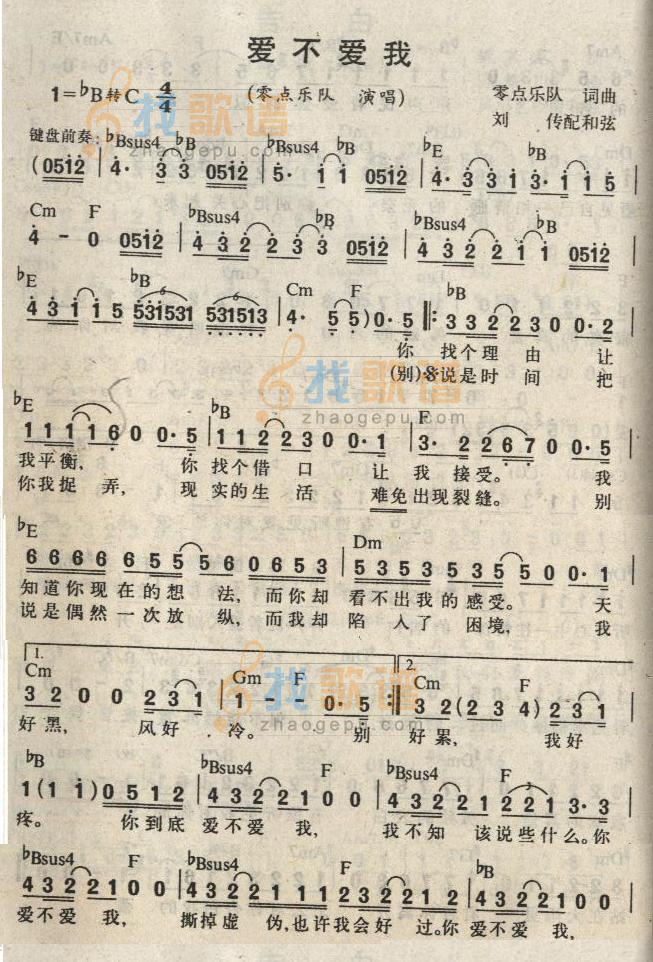 爱不爱我
1=♭B转C 4/4 (零点乐队 演唱) 零点乐队 词曲
刘 传配和弦
键盘前奏: ♭Bsus4 ♭B ♭Bsus4 ♭B ♭E ♭B
(0512 | 4· 3 3 0512 | 5· 1 1 0512 | 4·3 3 1 3·1 1 5 |
Cm F ♭Bsus4 ♭B ♭Bsus4 ♭B
4 - 0 0512 | 4 3 2 2 3 3 0512 | 4 3 2 2 1 1 0512 |
♭E ♭B Cm F ♭B
4 3 1 1 5 531531 531513 | 4· 5 5) 0·5 ‖: 3 3 2 2 3 0 0·2 |
你 找个理 由 让
(别)说是时 间 把
♭E ♭B F
1 1 1 1 6 0 0·5 | 1 1 2 2 3 0 0·1 | 3· 2 2 6 7 0 0·5 |
我平衡, 你 找个借 口 让 我 接受。 我
你我捉 弄, 现 实的生 活 难免出现裂缝。 别
♭E Dm
6 6 6 6 6 5 5 5 6 0 6 5 3 | 5 3 5 3 5 3 5 5 0 0·1 |
知道你现在的想 法, 而你却 看不出我的感受。 天
说是偶然一次放 纵, 而我却 陷 入了 困境, 我
1. 2.
Cm Gm F Cm F
3 2 0 0 2 3 1 | 1 - - 0·5 :‖ 3 2 (2 3 4) 2 3 1 |
好黑, 风好 冷。 别 好累, 我好
♭B ♭Bsus4 F ♭Bsus4 F
1 (1 1) 0 5 1 2 | 4 3 2 2 1 0 0 | 4 3 2 2 1 2 2 1 3·3 |
疼。 你到底 爱不爱 我, 我不知 该说些什么。你
♭Bsus4 F ♭Bsus4 F ♭B
4 3 2 2 1 0 0 | 4 3 2 2 1 1 1 2 3 2 2 1 2 | 4 3 2 2 1 0 0 |
爱不爱 我, 撕掉虚 伪,也许我会好 过。你 爱不爱 我,
找歌谱
zhaogepu.com
找歌谱
zhaogepu.com
找歌谱
zhaogepu.com